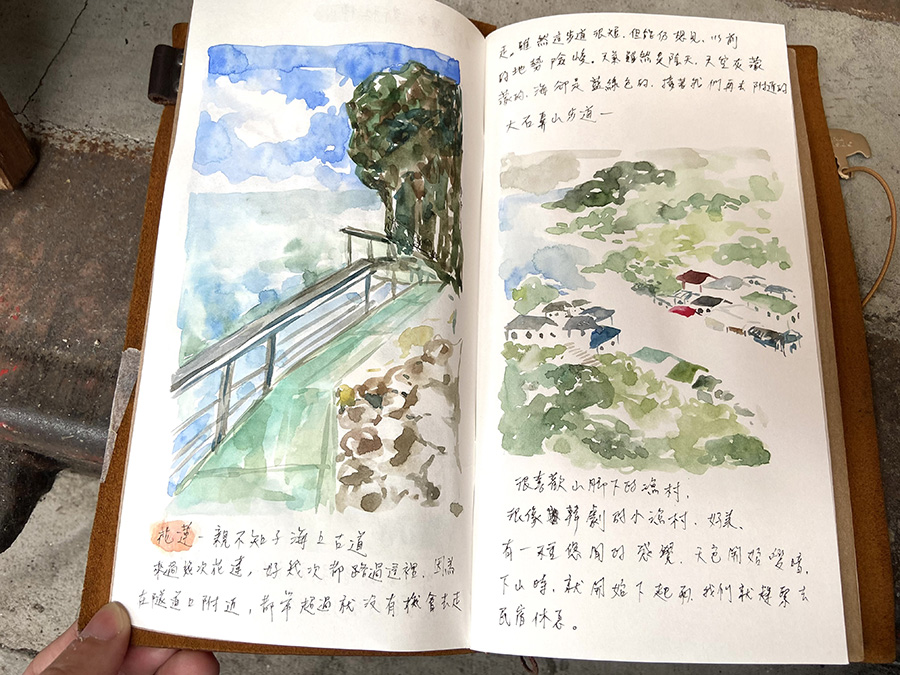 花蓮 - 親不知子海上古道
來過幾次花蓮，好幾次都路過這裡，因為
在隧道口附近，都常超過就沒有機會去走
走。雖然這步道很短，但能仍想見，以前
的地勢險峻。天氣雖然是陰天，天空灰濛
濛的，海卻是藍綠色的，接著我們再去附近的
大石鼻山步道一
很喜歡山腳下的漁村，
很像韓劇的小漁村，好美，
有一種悠閒的感覺，天色開始變暗，
下山時，就開始下起雨，我們就趕緊去
民宿休息。